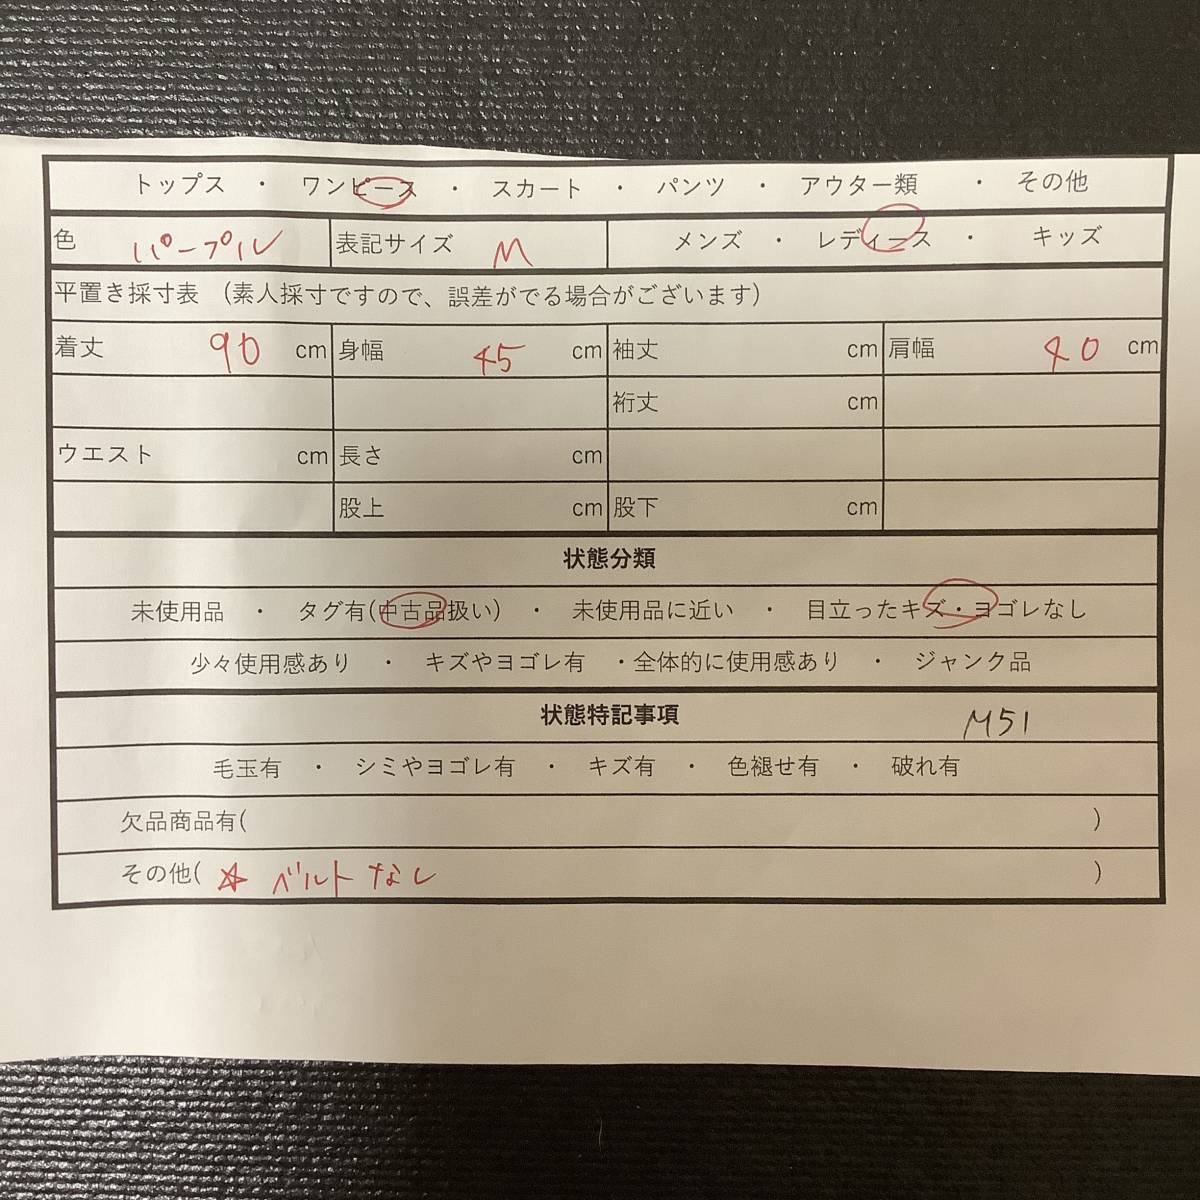 トップス ・ ワンピース ・ スカート ・ パンツ ・ アウター類 ・ その他
色 パープル 表記サイズ M メンズ ・ レディース ・ キッズ
平置き採寸表 (素人採寸ですので、誤差がでる場合がございます)
着丈 90 cm 身幅 45 cm 袖丈 cm 肩幅 40 cm
裄丈 cm
ウエスト cm 長さ cm
股上 cm 股下 cm
状態分類
未使用品 ・ タグ有(中古品扱い) ・ 未使用品に近い ・ 目立ったキズ・ヨゴレなし
少々使用感あり ・ キズやヨゴレ有 ・全体的に使用感あり ・ ジャンク品
状態特記事項 M51
毛玉有 ・ シミやヨゴレ有 ・ キズ有 ・ 色褪せ有 ・ 破れ有
欠品商品有( )
その他( ☆ ベルトなし )